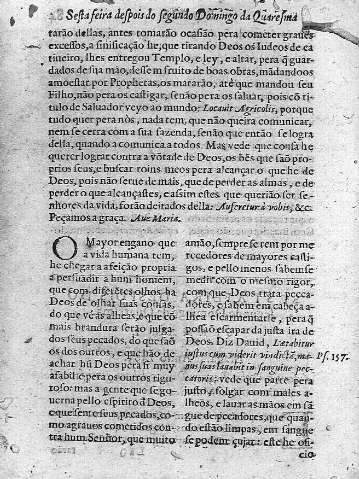 Sesta feira despois do segundo Domingo da Quaresma
tarão dellas, antes tomarão ocasião pera cometer graues
excessos, a sinificação he, que tirando Deos os Iudeos de ca
tiueiro, lhes entregou Templo, e ley, e altar, pera q̃ guar-
dados de sua mão, dessem fruito de boas obras, mãdandoos
amoestar por Prophetas, os matarão, até que mandou seu
Filho, não pera os castigar, senão pera os saluar, pois cõ ti
tulo de Saluador veyo ao mundo: Locauit Agricolis, porque
tudo quer pera nòs, nada tem, que não queira comunicar,
nem se cerra com a sua fazenda, senão que então se logra
della, quando a comunica a todos. Mas vede que cousa he
querer lograr contra a võtade de Deos, os bẽs que saõ pro
prios seus, e buscar roins meos pera alcançar o que he de
Deos, pois não serue de mais, que de perder as almas, e de
perder o que alcançastes, e assim estes que querião ser se-
nhores da vinha, forão deitados della: Auferetur à vobis, &c.
Peçamos a graça. Aue Maria.
O Mayor engano que
a vida humana tem,
he chegar a afeição propria
a persuadir a hum homem,
que com diferẽtes olhos ha
Deos de olhar suas cousas,
do que vé as alheas, e que cõ
mais brandura serão julga-
dos seus pecados, do que saõ
os dos outros, e que hão de
achar hũ Deos pera si muy
afabil e pera os outros rigu-
roso: mas a gente que se go-
uerna pello espirito de Deos,
e que sente seus pecados, co-
mo agrauos cometidos con-
tra hum Senhor, que muito
amão, sempre se tem por me
recedores de mayores casti-
gos, e pello menos sabem se
medir com o mesmo rigor,
com que Deos trata peca-
dores, e sabem em cabeça a-
lhea escarmentar, pera q̃
possão escapar da justa ira de
Deos. Diz Dauid, Lætabitur
iustus cum viderit vindictã, ma-
nus suas lauabit in sanguine pec-
catoris: vede que parte pera
justo, folgar com males a-
lheos, e lauar as mãos em sã
gue de pecadores, que quan-
do estão limpas, em sangue
se podem çujar: este he ofi-
Ps. 157.
cio